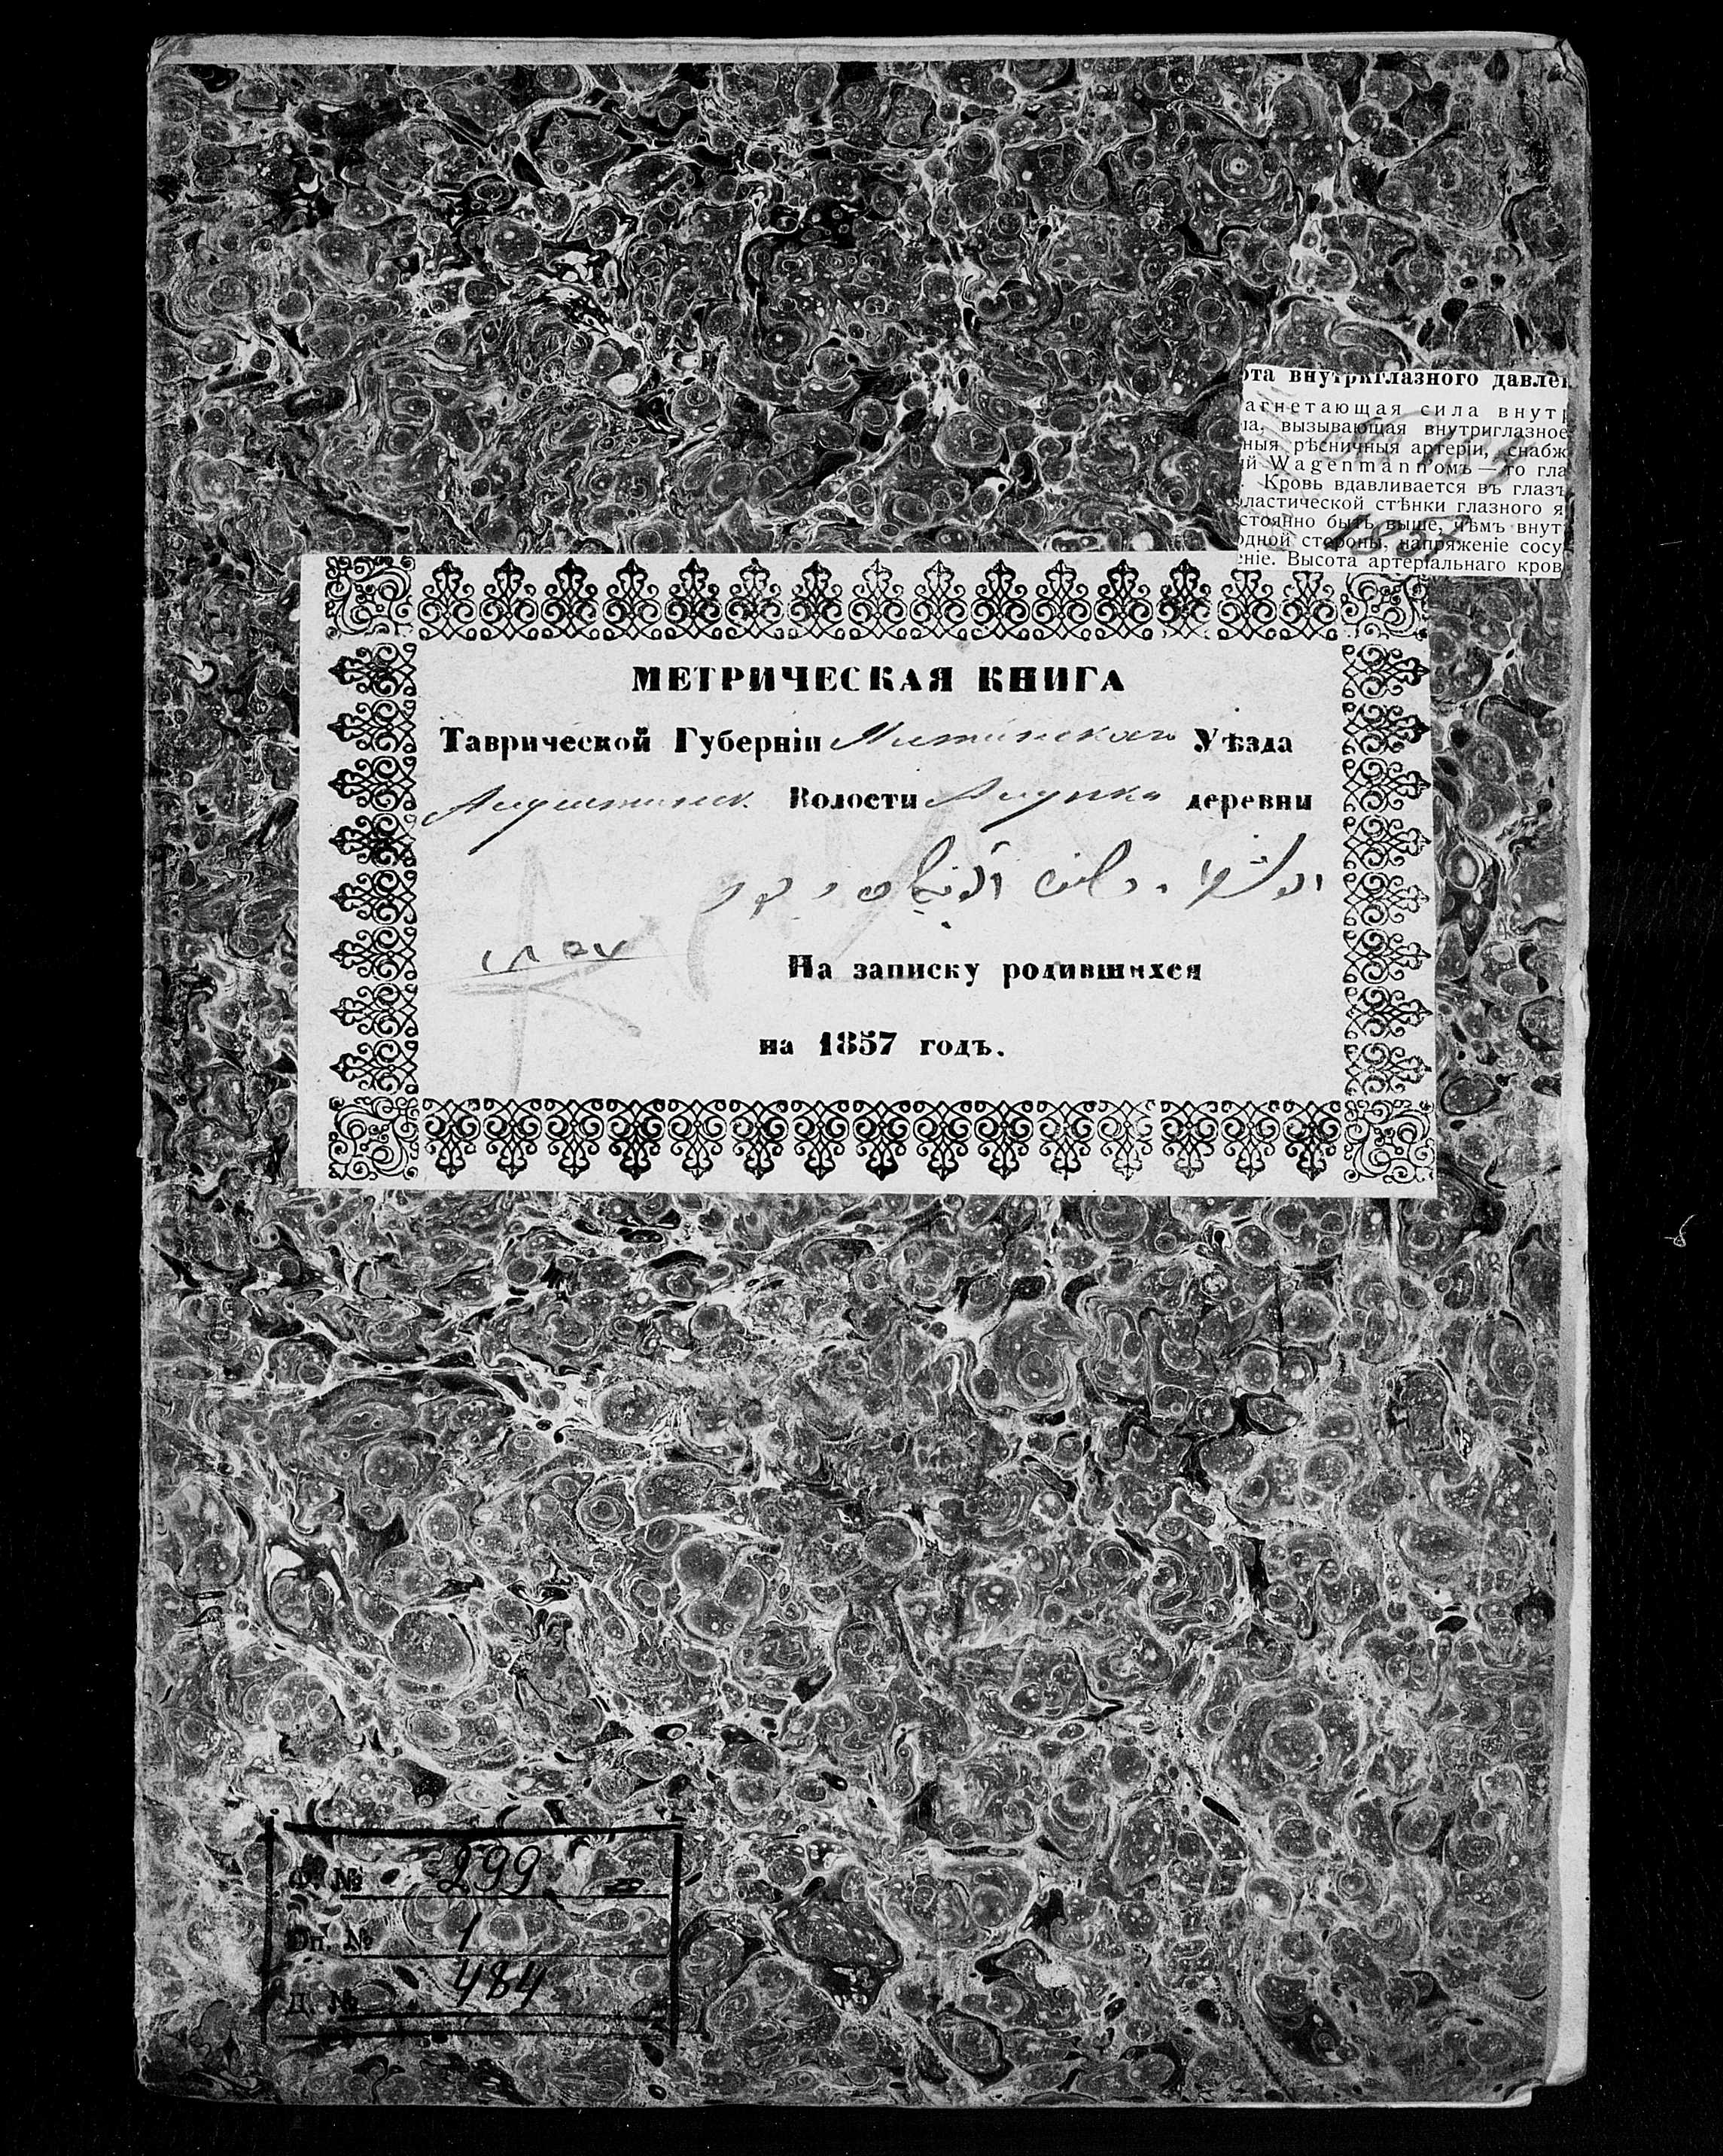 ота внутриглазного давле
агнетающая сила внутр
ла, вызывающая внутриглазное
ныя рѣсничныя артеріи, снабж
й Wagenmann'омъ — то гла
Кровь вдавливается въ глазъ
эластической стѣнки глазного я
стоянно быть выше, чѣмъ внут
одной стороны, напряженіе сосу
еніе. Высота артеріальнаго кров
МЕТРИЧЕСКАЯ КНИГА
Таврической Губерніи Ялтинскаго Уѣзда
Алуштинск. Волости Алупка деревни
١٨٥٧
На записку родившихся
на 1857 годъ.
Ф. № 299
Оп. № 1
Д. № 484